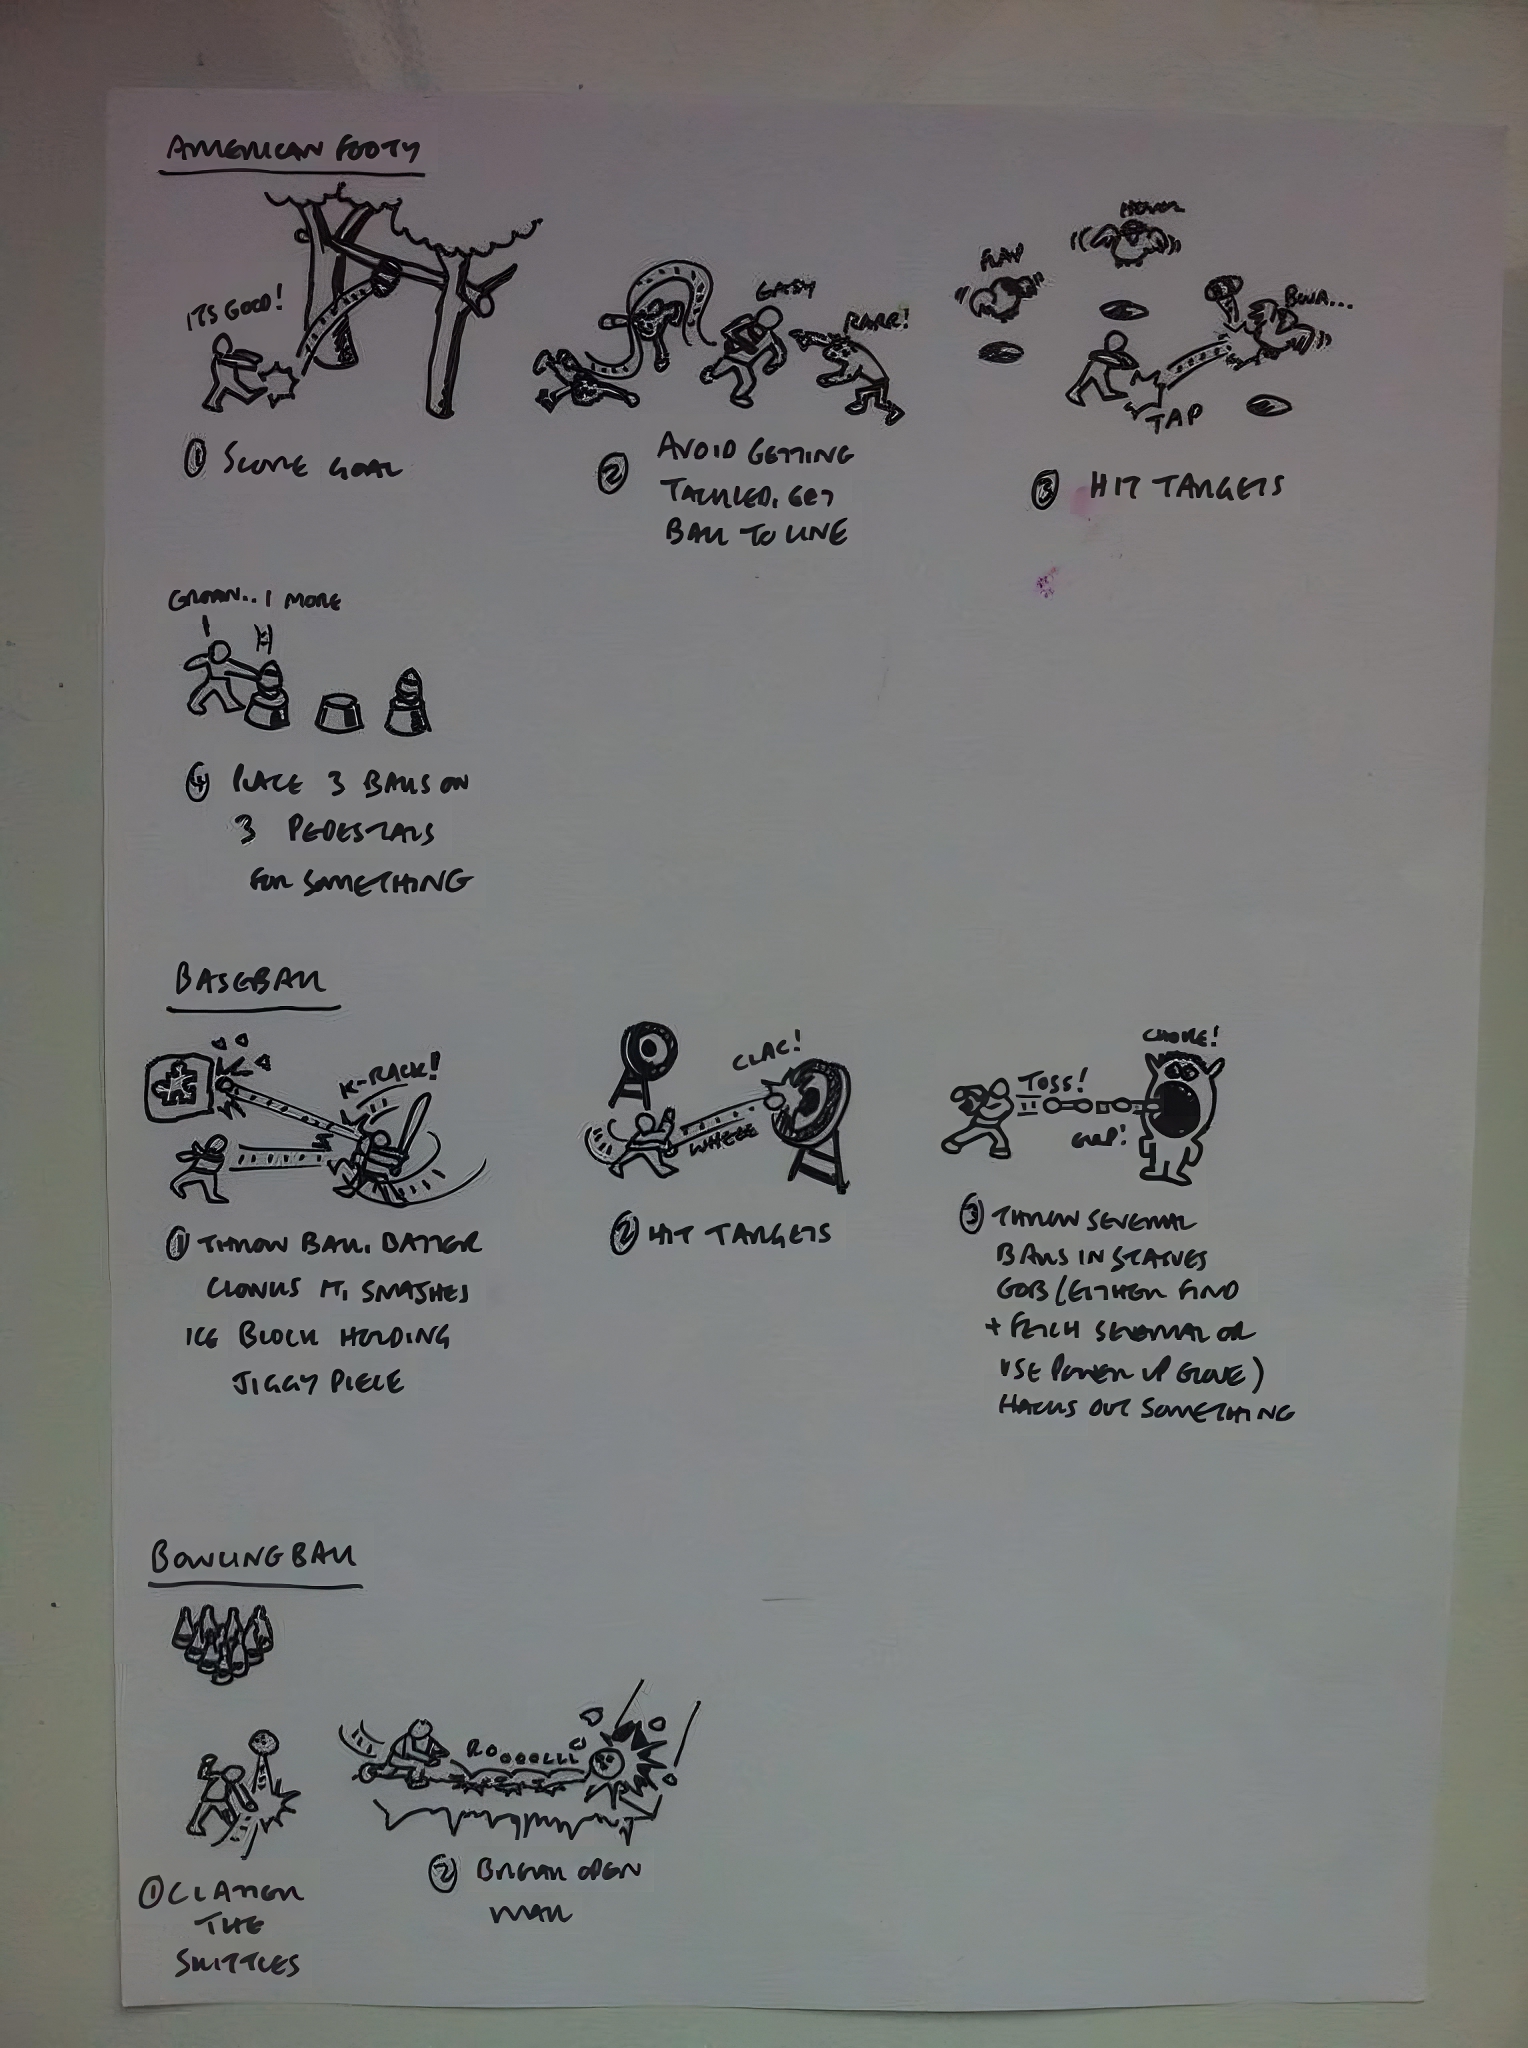 AMERICAN FOOTY
ITS GOOD!
① SCORE GOAL
GADY
RARR!
② AVOID GETTING
TACKLED. GET
BALL TO LINE
FLAP
HOVER
TAP
③ HIT TARGETS
GROAN.. 1 MORE
④ PLACE 3 BALLS ON
3 PEDESTALS
FOR SOMETHING
BASEBALL
K-RACK!
① THROW BALL. BATTER
CLONKS IT, SMASHES
ICE BLOCK HOLDING
JIGGY PIECE
CLAC!
WHEEE
② HIT TARGETS
CHOKE!
TOSS!
GULP!
③ THROW SEVERAL
BALLS IN STATUES
GOB (EITHER FIND
+ FETCH SEVERAL OR
USE POWER UP GLOVE)
HACKS OUT SOMETHING
BOWLING BALL
ROOOOLLL
① CLATTER
THE
SKITTLES
② BREAK OPEN
WALL